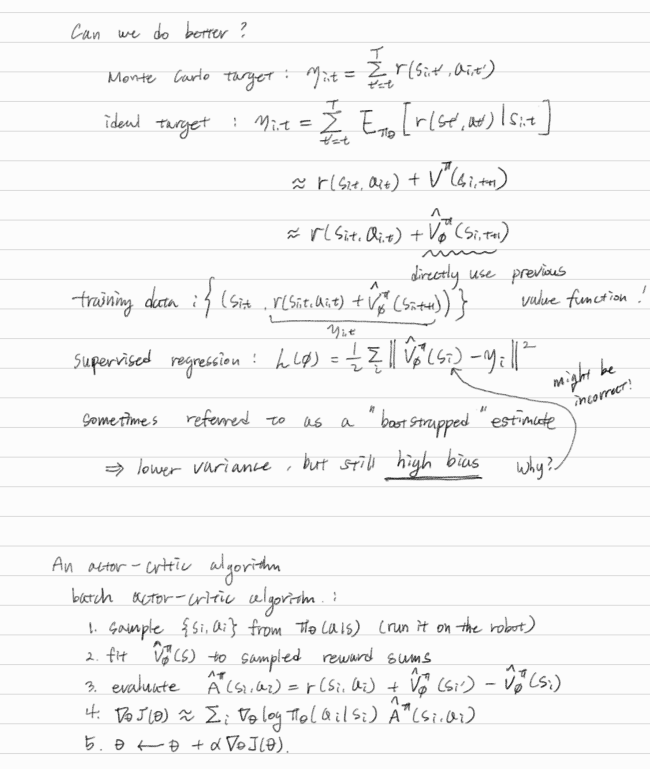 Can we do better?
Monte Carlo target : y_{i,t} = Σ_{t'=t}^{T} r(s_{i,t'}, a_{i,t'})
ideal target : y_{i,t} = Σ_{t'=t}^{T} E_{πθ} [r(s_{t'}, a_{t'}) | s_{i,t}]
≈ r(s_{i,t}, a_{i,t}) + V^π(s_{i,t+1})
≈ r(s_{i,t}, a_{i,t}) + V̂_φ^π(s_{i,t+1})
directly use previous
value function!
training data : { (s_{i,t}, r(s_{i,t}, a_{i,t}) + V̂_φ^π(s_{i,t+1})) }
y_{i,t}
supervised regression : L(φ) = 1/2 Σ_i ‖ V̂_φ^π(s_i) − y_i ‖²
might be
incorrect!
sometimes referred to as a "bootstrapped" estimate
⇒ lower variance, but still high bias why?
An actor-critic algorithm
batch actor-critic algorithm :
1. sample {s_i, a_i} from πθ(a|s) (run it on the robot)
2. fit V̂_φ^π(s) to sampled reward sums
3. evaluate Â^π(s_i, a_i) = r(s_i, a_i) + V̂_φ^π(s_i') − V̂_φ^π(s_i)
4. ∇θJ(θ) ≈ Σ_i ∇θ log πθ(a_i|s_i) Â^π(s_i, a_i)
5. θ ← θ + α∇θJ(θ).